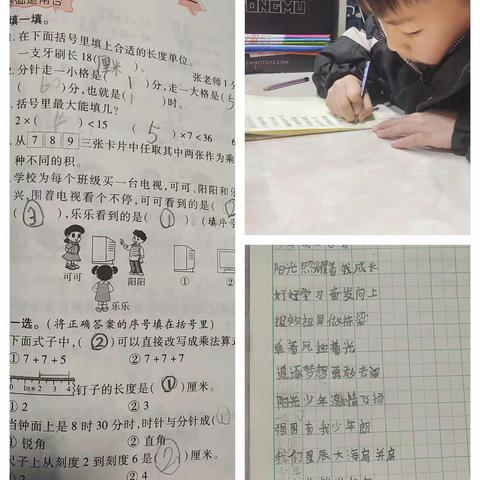 填一填。
1. 在下面括号里填上合适的长度单位。
一支牙刷长18(厘米)。 张老师1
2. 分针走一小格是(1)分,走一大格是(5
(60)分,也就是(1)时。
括号里最大能填几?
2×( )<15 (5)×7<36 6
从 7 8 9 三张卡片中任取其中两张作为乘
种不同的积。
学校为每个班级买一台电视,可可、阳阳和乐
兴,围着电视看个不停,可可看到的是(②
(③),乐乐看到的是(①)。(填序号
可可 阳阳 ① ②
乐乐
一选。(将正确答案的序号填在括号里)
下面式子中,(②)可以直接改写成乘法算式
① 7+7+5 ② 7+7+7
钉子的长度是(①)厘米。
① 2 ② 3
当钟面上是8时30分时,时针与分针成(①
① 锐角 ② 直角
尺子上从刻度2到刻度6是(2)厘米。
① 4 ② 6
ONGMU
阳光照耀着我成长
好好学习奋发向上
报效祖国做栋梁
乘着风迎着光
追逐梦想勇敢去闯
阳光少年激情飞扬
强国有我少年朗
我们星辰大海肩并肩